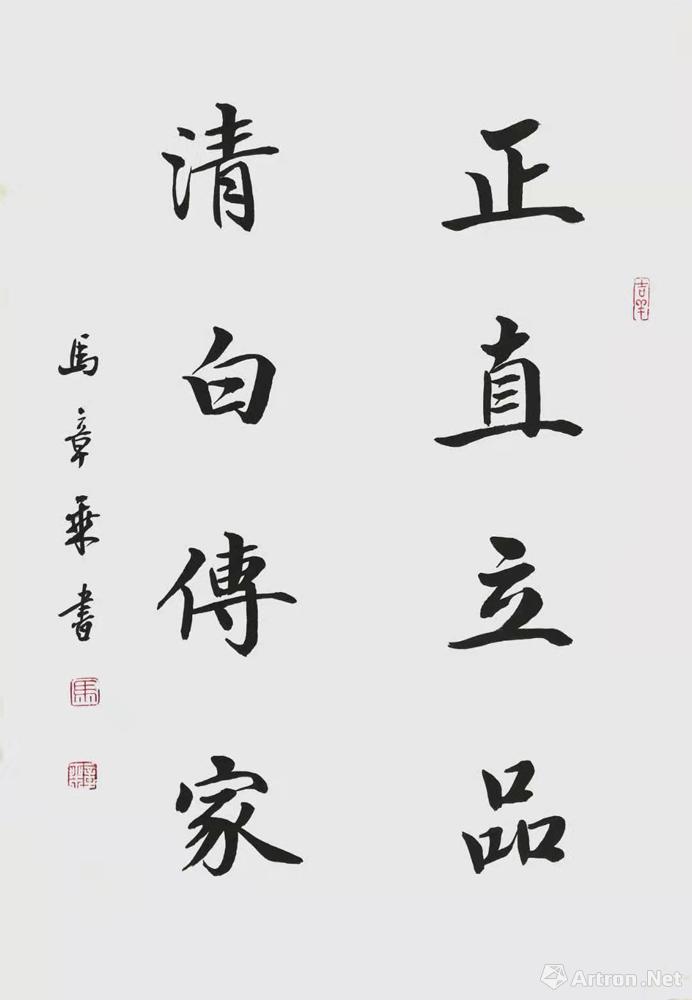 正直立品
清白傳家
馬章乘書
Artron.Net